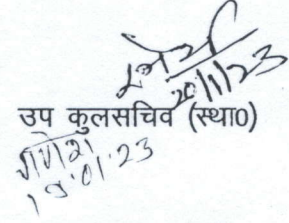 20/1/23
उप कुलसचिव (स्था0)
गणेश
19.01.23